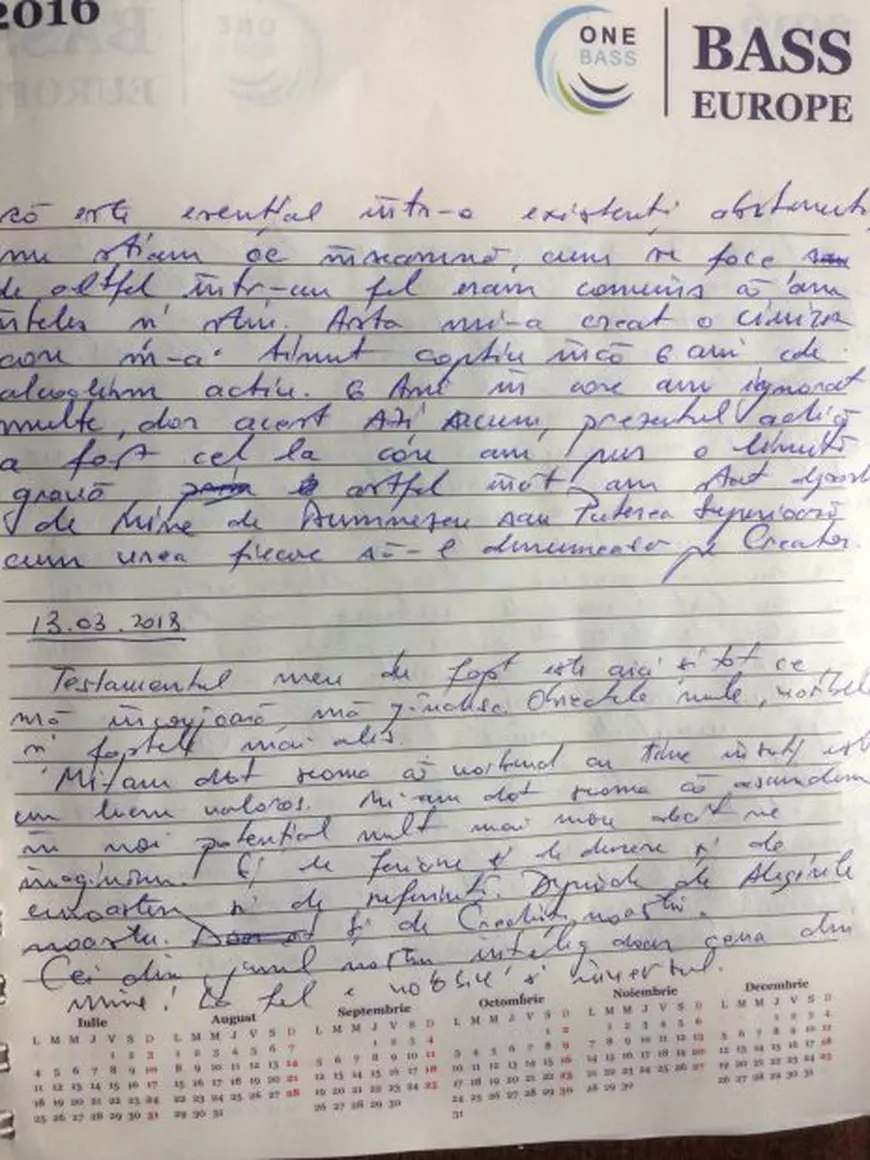 2016
ONE
BASS
BASS
EUROPE
că este esențial într-o existență
nu știam ce înseamnă, cum se face
de altfel într-un fel eram convins că am
și știu. Asta mi-a creat o
care m-a ținut captiv încă 6 ani de
alcoolism activ. 6 Ani în care am ignorat
multe, dar acest Azi Acum, prezentul adică
a fost cel la care am pus o
gravă astfel încât am stat
de Mine de Dumnezeu sau Puterea Superioară
cum vrea fiecare să-l denumească pe Creator.
13.03.2018
Testamentul meu de fapt este aici și tot ce
mă înconjoară, mă Obiectele mele, vorbele
și faptele mai ales.
Mi-am dat seama că vorbind cu tine însuți este
un lucru valoros. Mi-am dat seama că ascundem
în noi potențial mult mai mare decât ne
imaginăm. Și de fericire și de durere și de
cunoaștere și de Depinde de Alegerile
noastre. Și de noastră.
Cei din jurul nostru înțeleg doar din
mine! La fel e valabil și inversul.
Iulie August Septembrie Octombrie Noiembrie Decembrie
L M M J V S D L M M J V S D L M M J V S D L M M J V S D L M M J V S D L M M J V S D
1 2 3 1 2 3 4 5 6 7 1 2 3 4 1 2 1 2 3 4 5 6 1 2 3 4
4 5 6 7 8 9 10 8 9 10 11 12 13 14 5 6 7 8 9 10 11 3 4 5 6 7 8 9 7 8 9 10 11 12 13 5 6 7 8 9 10 11
11 12 13 14 15 16 17 15 16 17 18 19 20 21 12 13 14 15 16 17 18 10 11 12 13 14 15 16 14 15 16 17 18 19 20 12 13 14 15 16 17 18
18 19 20 21 22 23 24 22 23 24 25 26 27 28 19 20 21 22 23 24 25 17 18 19 20 21 22 23 21 22 23 24 25 26 27 19 20 21 22 23 24 25
25 26 27 28 29 30 31 29 30 31 26 27 28 29 30 24 25 26 27 28 29 30 28 29 30 26 27 28 29 30 31
31